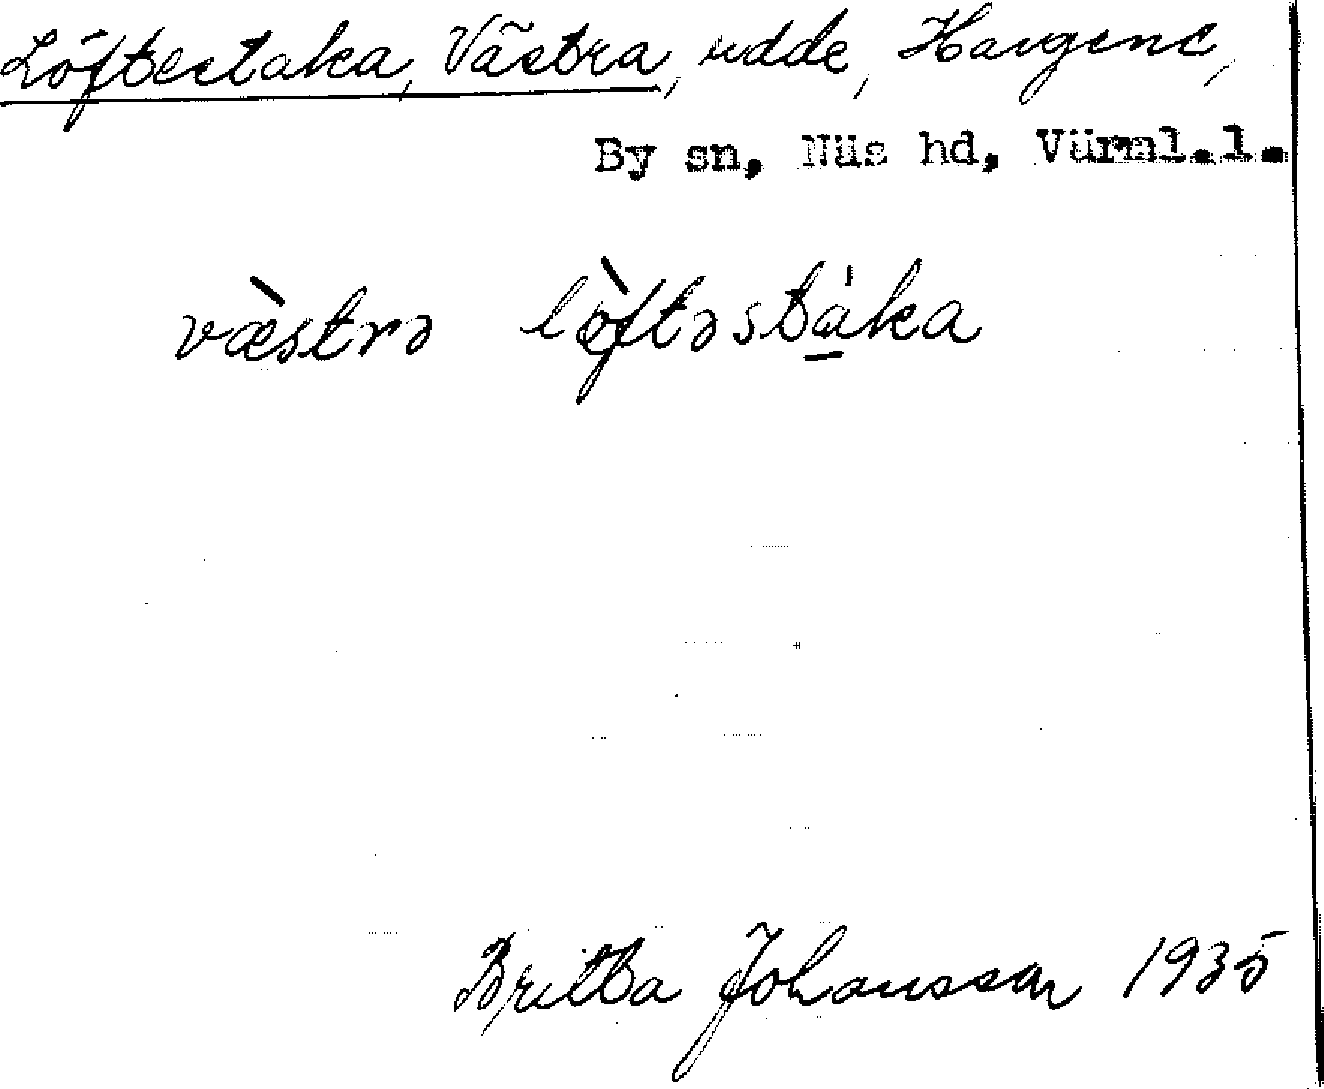 Löftestaka, Västra, udde, Hargene,
By sn, Näs hd, Värml.l.
væ̀strə lø̀ftəstá̠ka
Britta Johansson 1935